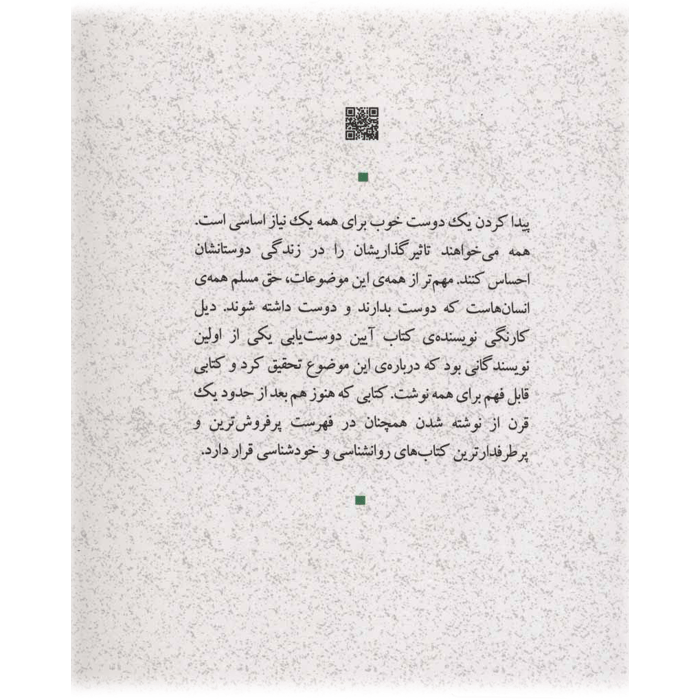 پیدا کردن یک دوست خوب برای همه یک نیاز اساسی است.
همه می‌خواهند تاثیرگذاریشان را در زندگی دوستانشان
احساس کنند. مهم‌تر از همه‌ی این موضوعات، حق مسلم همه‌ی
انسان‌هاست که دوست بدارند و دوست داشته شوند. دیل
کارنگی نویسنده‌ی کتاب آیین دوست‌یابی یکی از اولین
نویسندگانی بود که درباره‌ی این موضوع تحقیق کرد و کتابی
قابل فهم برای همه نوشت. کتابی که هنوز هم بعد از حدود یک
قرن از نوشته شدن همچنان در فهرست پرفروش‌ترین و
پرطرفدارترین کتاب‌های روانشناسی و خودشناسی قرار دارد.